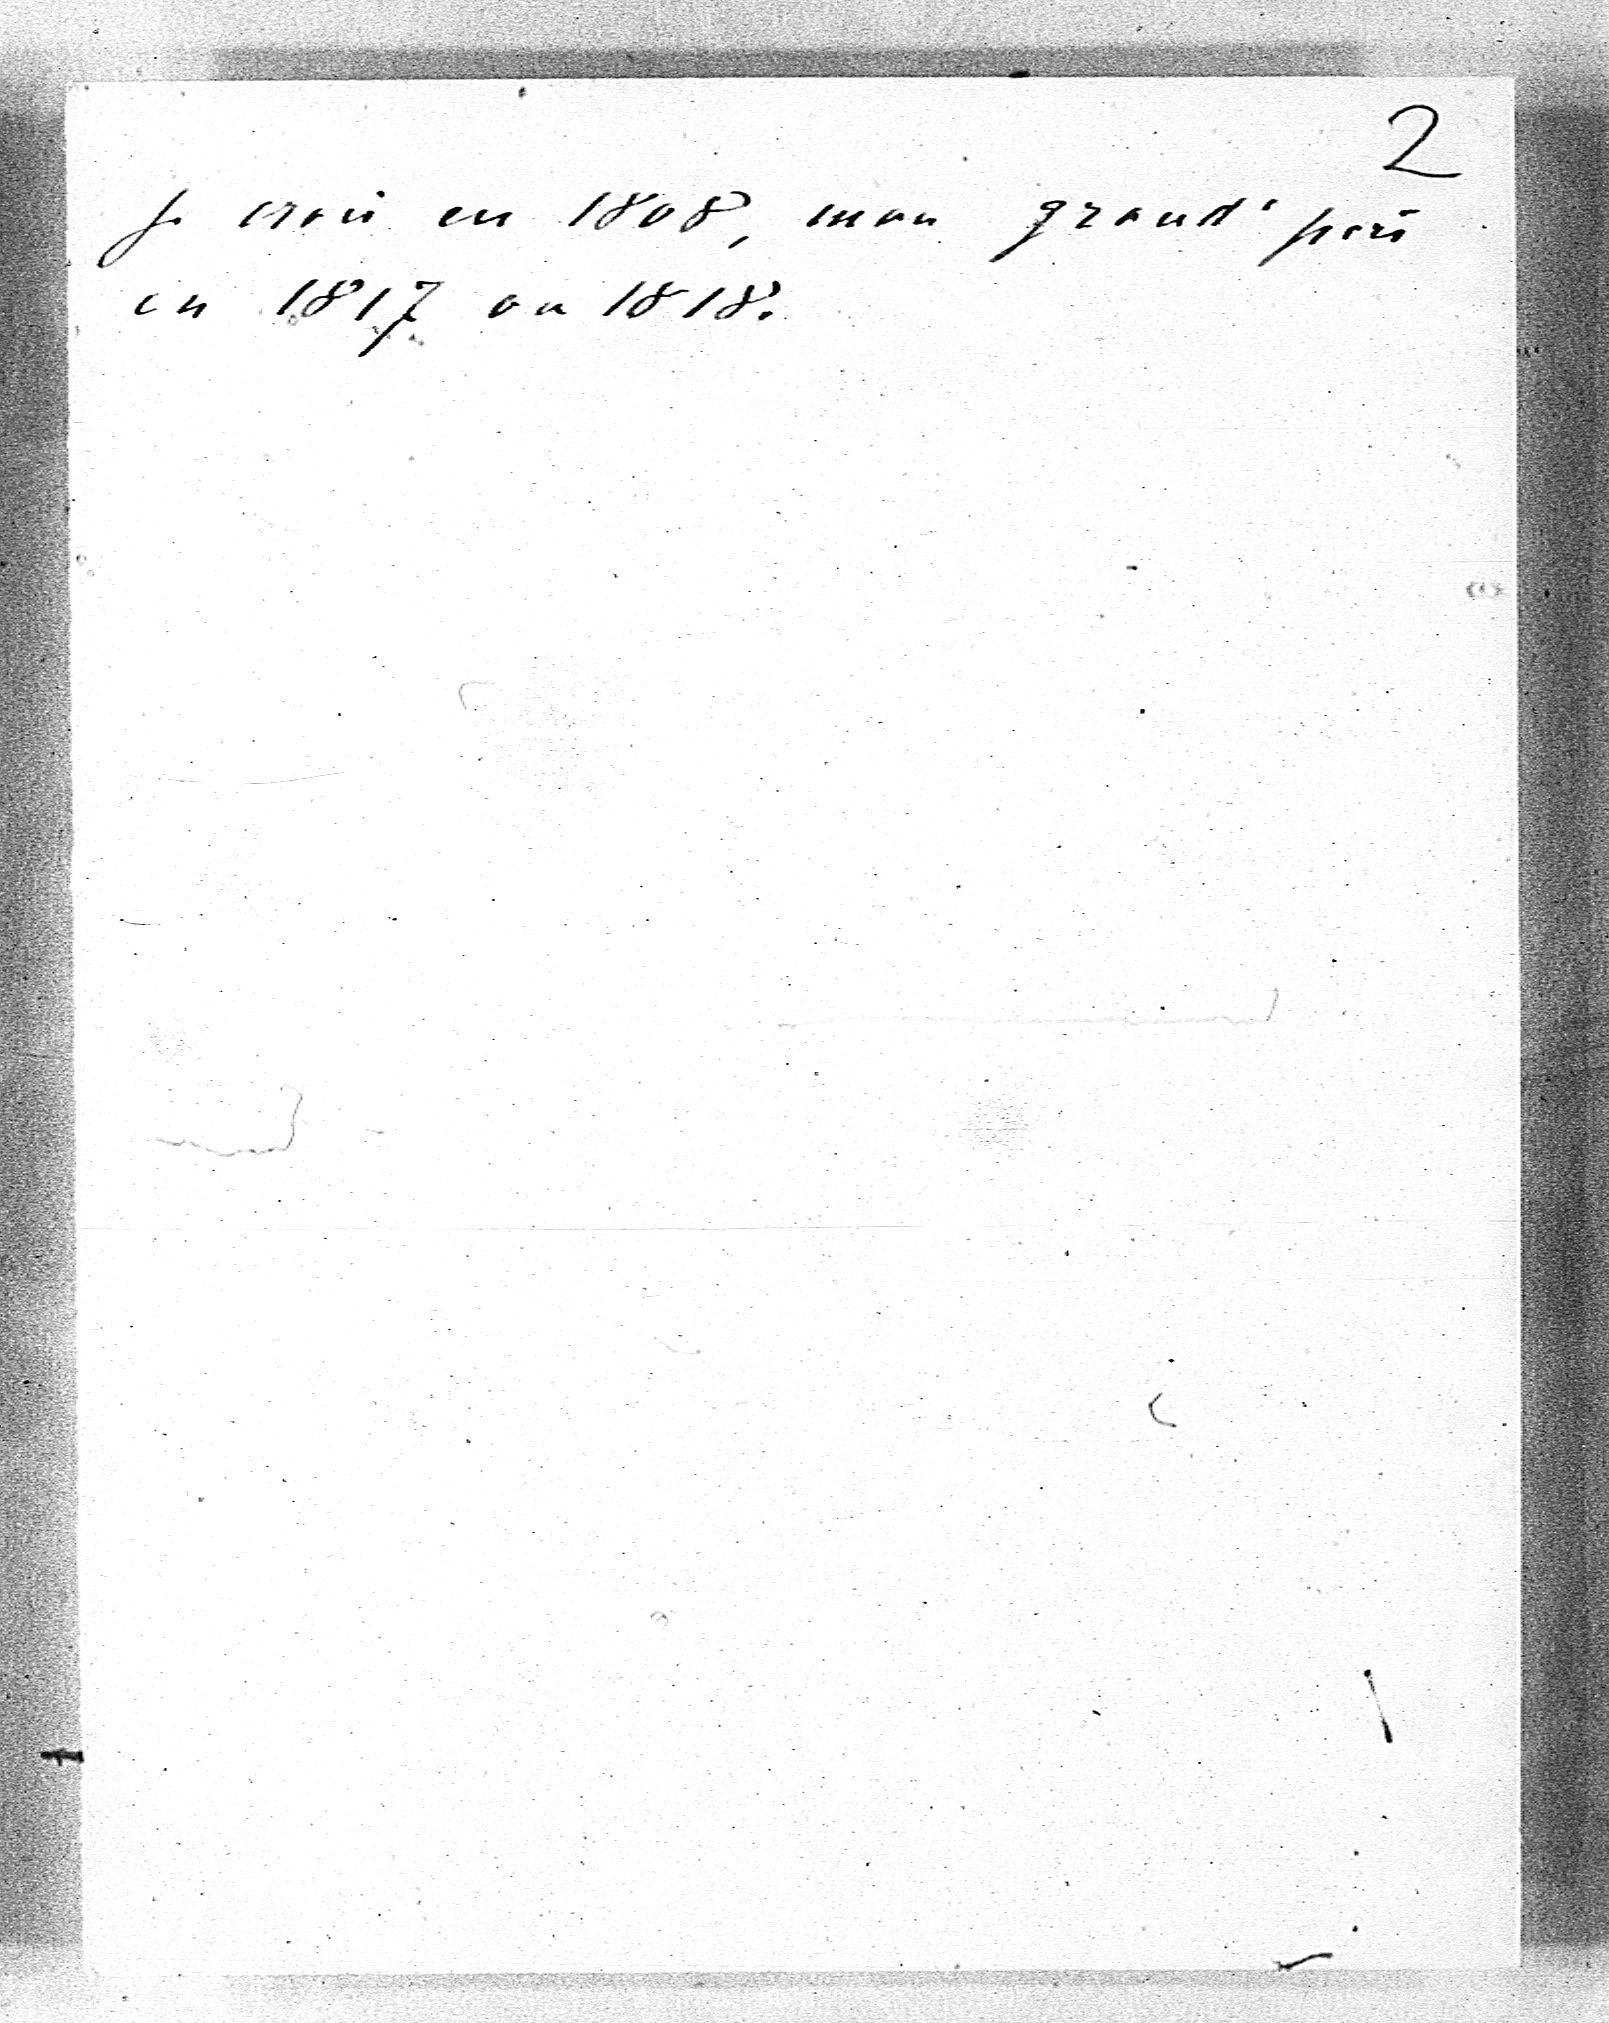 2
Je crois en 1808, mon grand' père
en 1817 ou 1818.